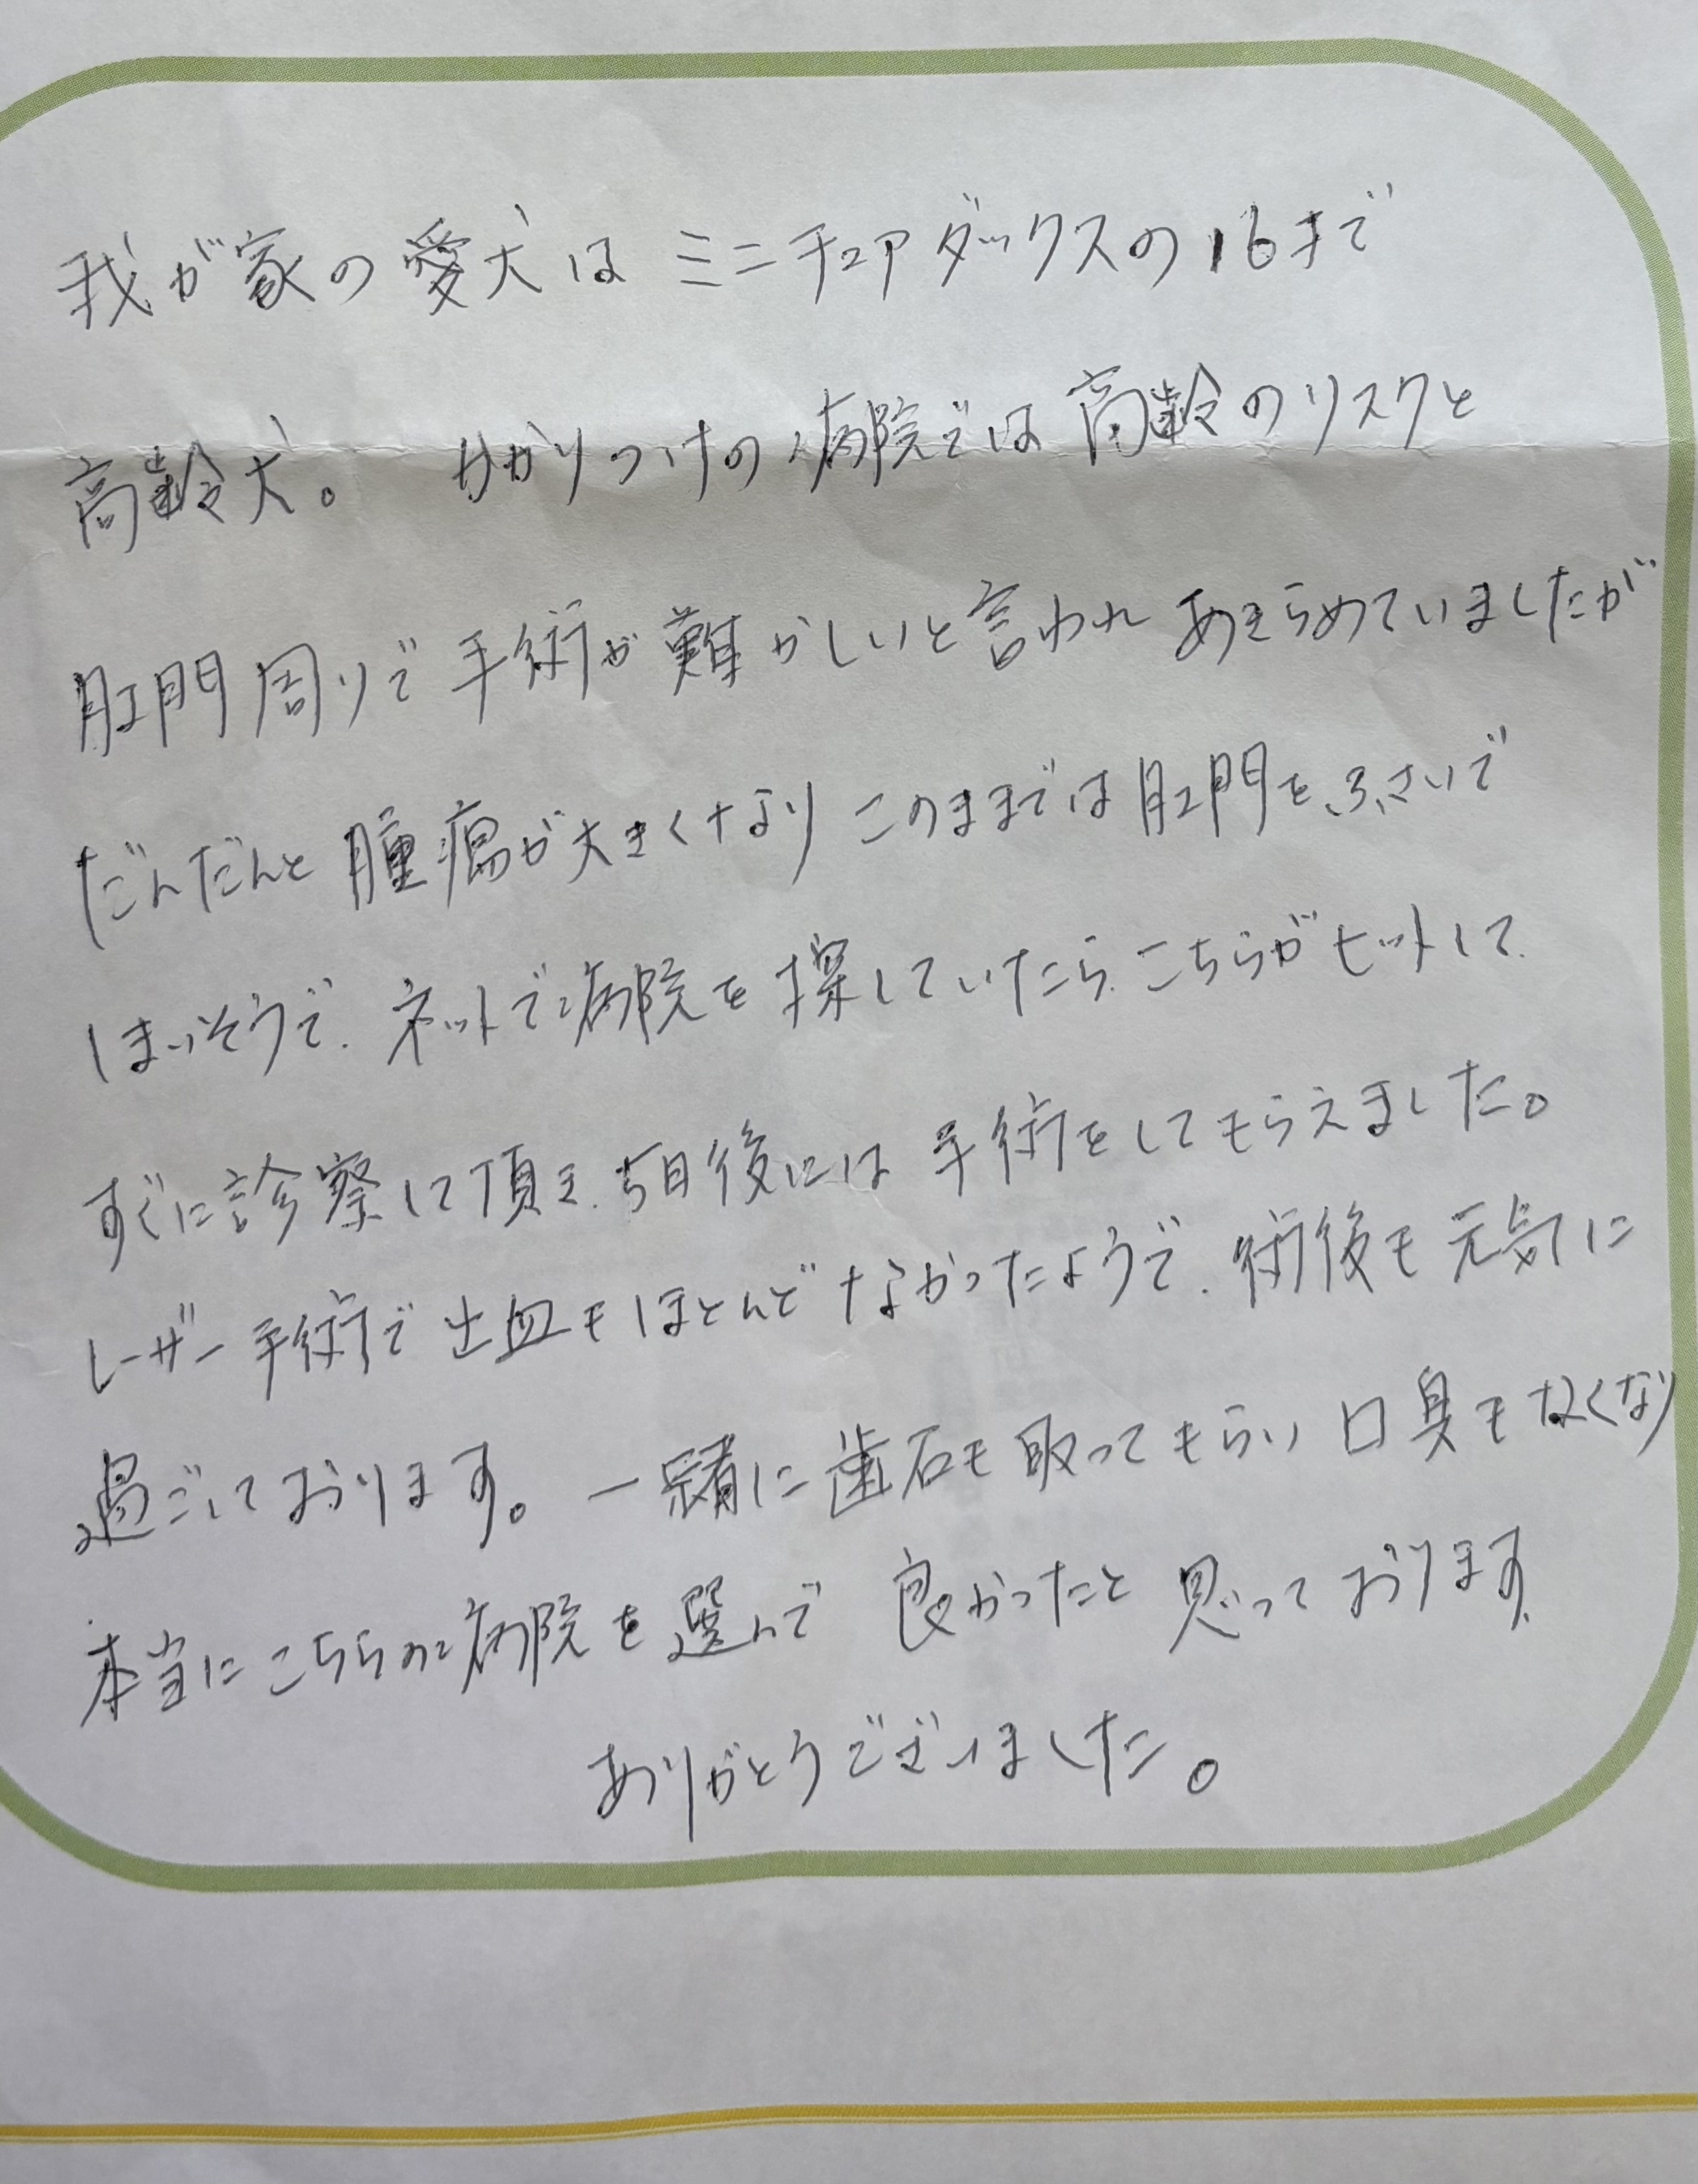 我が家の愛犬はミニチュアダックスの16才で
高齢犬。 かかりつけの病院では高齢のリスクと
肛門周りで手術が難かしいと言われあきらめていましたが
だんだんと腫瘍が大きくなりこのままでは肛門をふさいで
しまいそうで、ネットで病院を探していたら、こちらがヒットして
すぐに診察して頂き、5日後には手術をしてもらえました。
レーザー手術で出血もほとんどなかったようで、術後も元気に
過ごしております。一緒に歯石も取ってもらい口臭もなくなり
本当にこちらの病院を選んで良かったと思っております。
ありがとうございました。